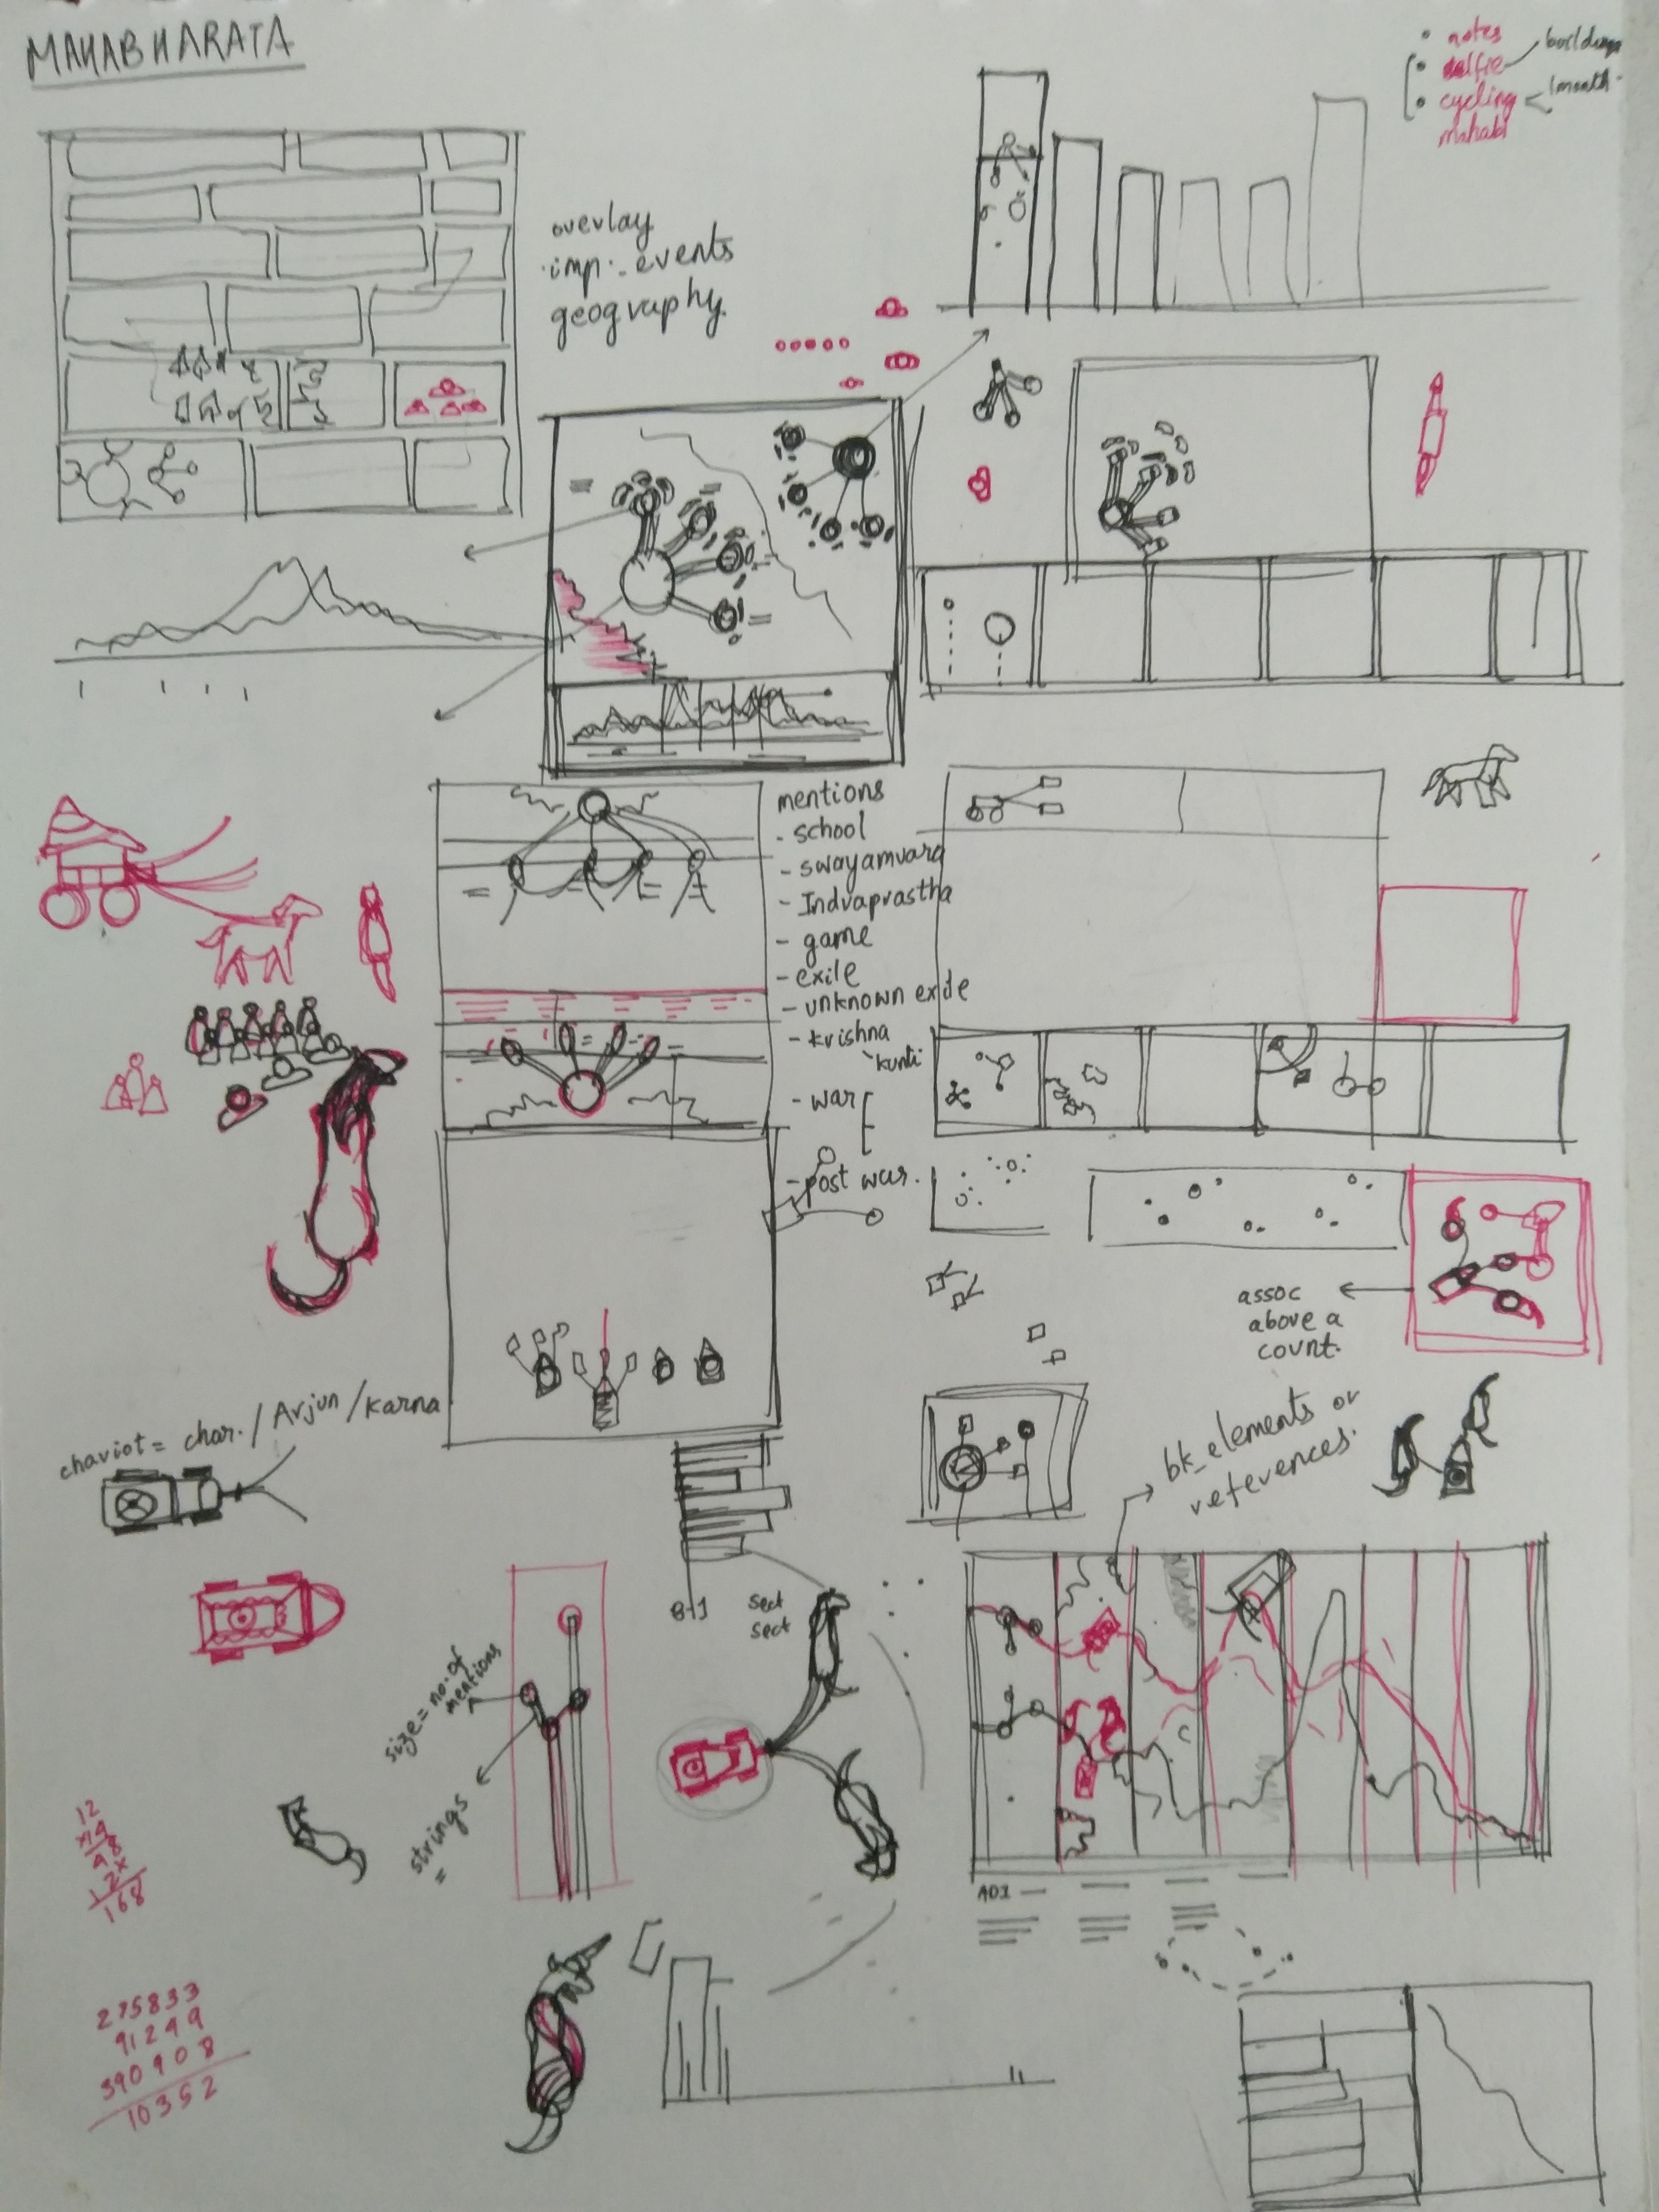 MAHABHARATA
notes
selfie
buildings
cycling
1 month
mahabl
overlay
imp. events
geography
mentions
- school
- swayamvara
- Indraprastha
- game
- exile
- unknown exile
- krishna
kunti
- war
- post war.
assoc
above a
count.
chariot = char. / Arjun / karna
bk_elements or
references.
B-1
sect
sect
size = no. of
mentions
strings
=
AD1
12
x14
48
12x
168
275833
91299
390908
10352